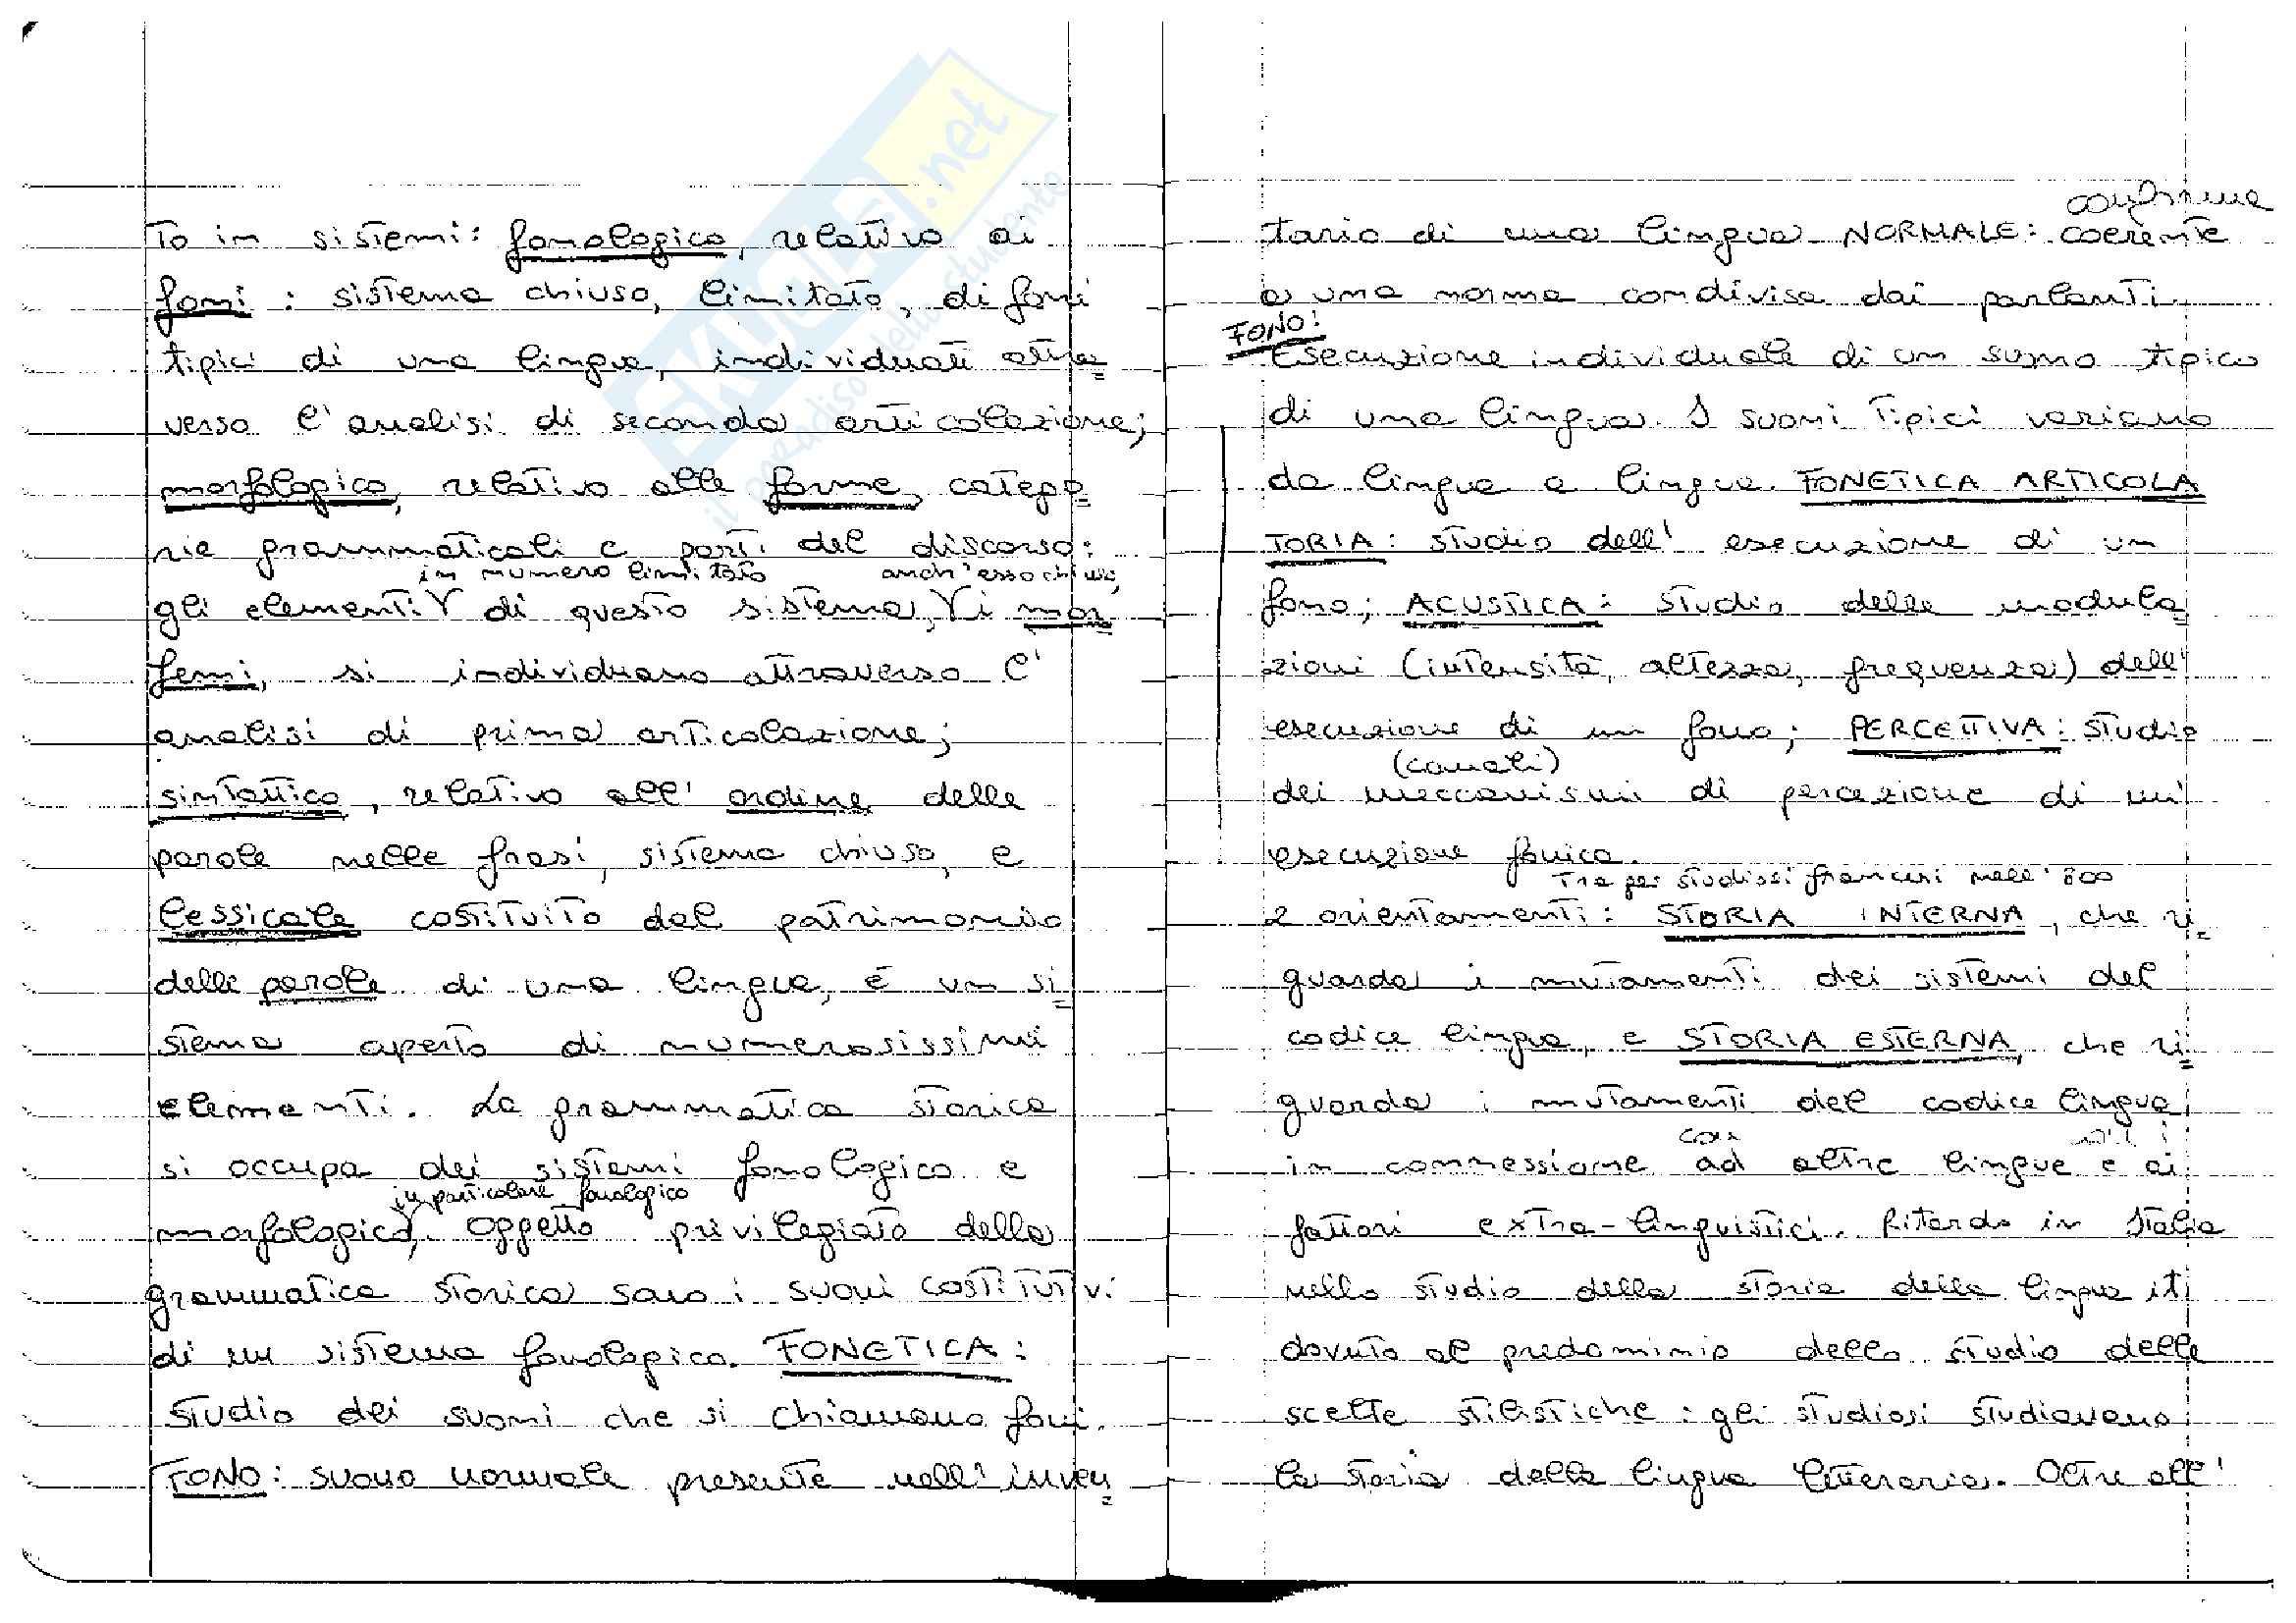 to in sistemi: fonologico, relativo ai
foni: sistema chiuso, limitato, di foni
tipici di una lingua, individuati attra=
verso l'analisi di seconda articolazione;
morfologico, relativo alle forme, catego=
rie grammaticali e parti del discorso:
in numero limitato anch'esso chiuso,
gli elementi di questo sistema, i mor=
femi, si individuano attraverso l'
analisi di prima articolazione;
sintattico, relativo all'ordine delle
parole nelle frasi, sistema chiuso, e
lessicale costituito dal patrimonio
delle parole di una lingua, è un si=
stema aperto di numerosissimi
elementi. La grammatica storica
si occupa dei sistemi fonologico e
in particolare fonologico
morfologico. Oggetto privilegiato della
grammatica storica sono i suoni costitutivi
di un sistema fonologico. FONETICA:
studio dei suoni che si chiamano foni.
FONO: suono normale presente nell'inven=
conforme
tario di una lingua NORMALE: coerente
a una norma condivisa dai parlanti.
FONO:
Esecuzione individuale di un suono tipico
di una lingua. I suoni tipici variano
da lingua a lingua. FONETICA ARTICOLA
TORIA: studio dell'esecuzione di un
fono; ACUSTICA: studio delle modula=
zioni (intensità, altezza, frequenza) dell'
esecuzione di un fono; PERCETTIVA: studio
(canali)
dei meccanismi di percezione di un'
esecuzione fonica.
Tra gli studiosi francesi nell'800
2 orientamenti: STORIA INTERNA, che ri=
guarda i mutamenti dei sistemi del
codice lingua, e STORIA ESTERNA, che ri=
guarda i mutamenti del codice lingua,
con
in connessione ad altre lingue e ai
fattori extra-linguistici. Ritardo in Italia
nello studio della storia della lingua it.
dovuto al predominio dello studio delle
scelte stilistiche: gli studiosi studiavano
la storia della lingua letteraria. Oltre all'
SKUOLA.net
il paradiso dello studente